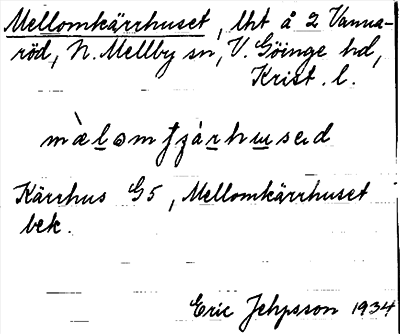 Mellomkärrhuset, lht å 2 Vanna-
röd, N. Mellby sn, V. Göinge hd,
Krist. l.
Kärrhus G5, Mellomkärrhuset
bek.
Eric Jepsson 1934